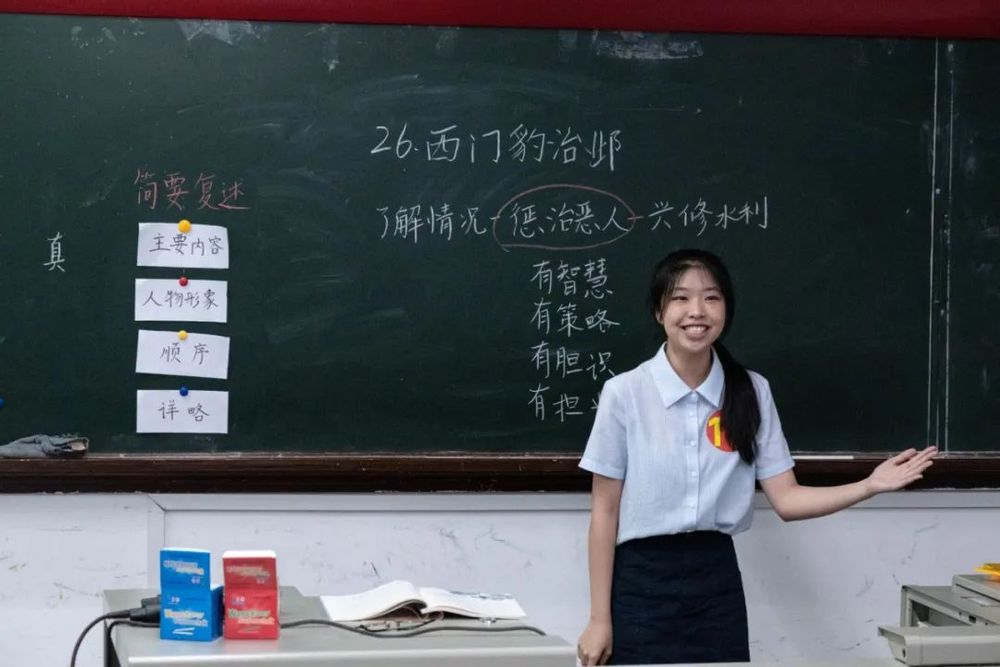 26.西门豹治邺
了解情况-惩治恶人-兴修水利
有智慧
有策略
有胆识
有担
简要复述
主要内容
人物形象
顺序
详略
真